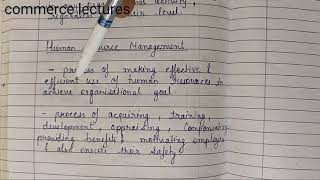 commerce lectures
regardless their level.
Human source Management
- process of making effective &
efficient use of human resources to
achieve organisational goal
- process of acquiring, training,
development, appraising, compensating
providing benefits & motivating employees
& also ensure their safety